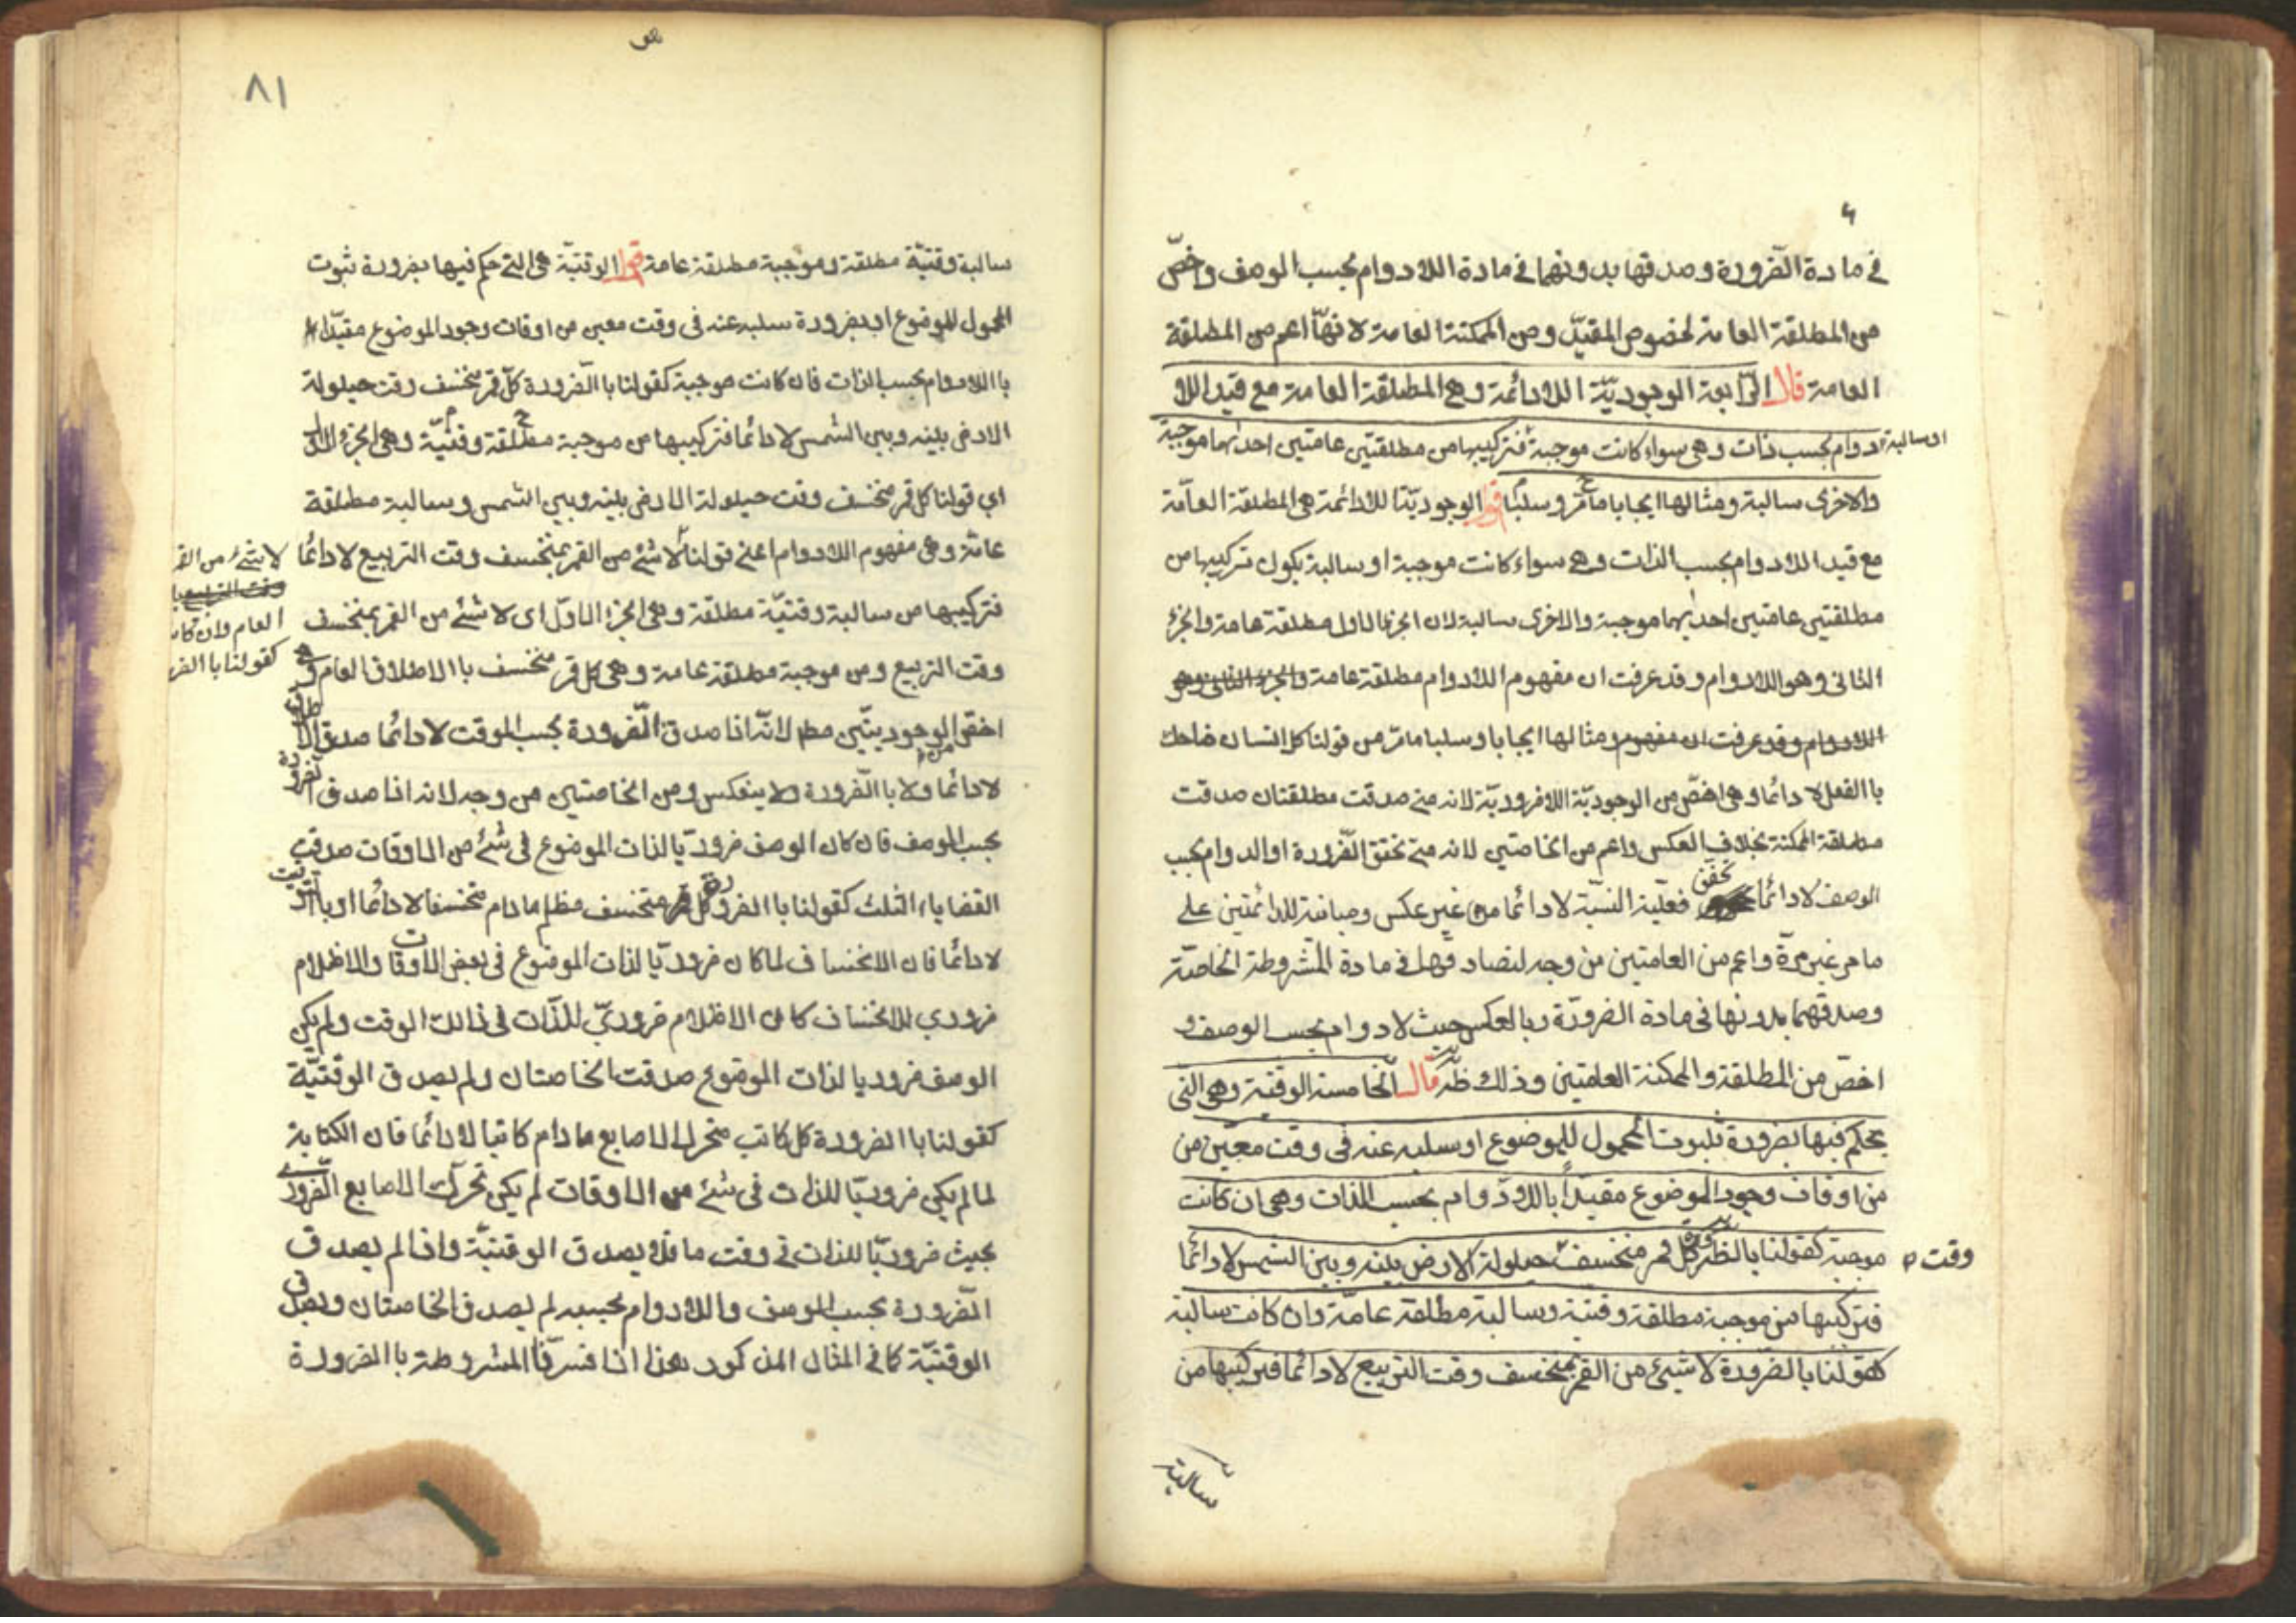 في مادة الضّرورة وصدقها بدونهما في مادة اللادوام بحسب الوصف واخصّ
من المطلقة العامة لخصوص المقيّد ومن الممكنة العامة لانهّا اعم من المطلقة
العامة قال الرّابعة الوجوديّة اللادائمة وهي المطلقة العامة مع قيد اللا
دوام بحسب ذات وهي سواء كانت موجبة فتركيبها من مطلقتين عامتين احدٰهما موجبة
او سالبة
والاخرى سالبة ومثالها ايجابا ما مّر وسلبًا الوجوديّة اللادائمة هي المطلقة العامّة
مع قيد اللادوام بحسب الذات وهي سواء كانت موجبة او سالبة يكون تركيبها من
مطلقتين عامتين احدٰيهما موجبة والاخرى سالبة لان الجزء الاول مطلقة عامة والجزء
الثاني وهو اللادوام وقد عرفت ان مفهوم اللادوام مطلقة عامة والجزء الثاني وهو
اللادوام وقد عرفت ان مفهوم ومثالها ايجابا وسلبا ما مّر من قولنا كل انسان ضاحك
باالفعل لا دائما وهي اخصّ من الوجوديّة اللاضروريّة لانه متى صدقت مطلقتان صدقت
مطلقة الممكنة بخلاف العكس واعم من الخاصتين لانه متى تحقق الضّرورة او الدوام بحسب
الوصف لا دائما تحقق فعليّة النسبّة لا دائما من غير عكس ومباينة للدائمتين على
ما مر غير مرّة واعم من العامتين من وجه لتصادقهما في مادة المشروطة الخاصّة
وصدقهما بدونها في مادة الضرورّة وبالعكس حيث لا دوام بحسب الوصف و
اخصّ من المطلقة والممكنة العامتين وذلك ظ قال الخامسة الوقتية وهي التي
يحكم فيها بضرورة ثبوت المحمول للموضوع او سلبه عنه في وقت معيّن من
من اوقات وجود الموضوع مقيدًا باللادوام بحسب الذات وهي ان كانت
موجبة كقولنا بالضرورة كل قمر منخسف حيلولة الارض بينه وبين الشمس لا دائما
وقت
فتركيبها من موجبة مطلقة وقتية وسالبة مطلقة عامّة وان كانت سالبة
كقولنا بالضرورة لا شيئ من القمر بمنخسف وقت التربيع لا دائما فتركيبها من
سالبة
٨١
سالبة وقتيّة مطلقة وموجبة مطلقة عامة الوقتيّة هي التي حكم فيها بضرورة ثبوت
المحمول للموضوع او بضرورة سلبه عنه في وقت معين من اوقات وجود الموضوع مقيّدا
باللادوام بحسب الذات فان كانت موجبة كقولنا باالضرورة كلّ قمر منخسف وقت حيلولة
الارض بينه وبين الشمس لا دائما فتركيبها من موجبة مطلقة وقتيّة وهي الجزء الاول
اي قولنا كل قمر منخسف وقت حيلولة الارض بينه وبين الشمس وسالبة مطلقة
عامّة وهي مفهوم اللادوام اعني قولنا لا شئ من القمر بمنخسف وقت التربيع لا دائما
لا شئ من القمر
وقت التربيع
العام وان كان
كقولنا باالضر
فتركيبها من سالبة وقتيّة مطلقة وهي الجزء الاوّل اى لا شئ من القمر بمنخسف
وقت التربيع ومن موجبة مطلقة عامة وهي كل قمر منخسف باالاطلاق العام وهي
اخصّ من الوجوديتيّن مطم لانّه اذا صدق الضّرورة بحسب الوقت لا دائما صدق الاطلاق
لا دائما ولا باالضّرورة ولا ينعكس ومن الخاصتين من وجه لانه اذا صدق الضرورة
بحسب الوصف فان كان الوصف ضروريّا لذات الموضوع في شئ من الاوقات صدقت
القضايا الثلث كقولنا باالضرورة كل قمر منخسف مظلم ما دام منخسفا لا دائما او باالتوقيت
لا دائما فان الانخساف لما كان ضروريّا لذات الموضوع في بعض الاوقات والاظلام
ضروري للانخساف كان الاظلام ضروريّ للذّات في ذالك الوقت ولم يكن
الوصف ضروريا لذات الموضوع صدقت الخاصتان ولم يصدق الوقتيّة
كقولنا باالضرورة كل كاتب متحرك الاصابع ما دام كاتبا لا دائما فان الكتابة
لما لم يكن ضروريّا للذات في شئ من الاوقات لم يكن تحرّك الاصابع الضّروري
بحيث ضروريّا للذات في وقت ما فلا يصدق الوقتيّة واذا لم يصدق
الضّرورة بحسب الوصف واللادوام بحسبه لم يصدق الخاصتان ويصدق
الوقتيّة كما في المثال المذكور هذا اذا فسرّنا المشروطة باالضرورة